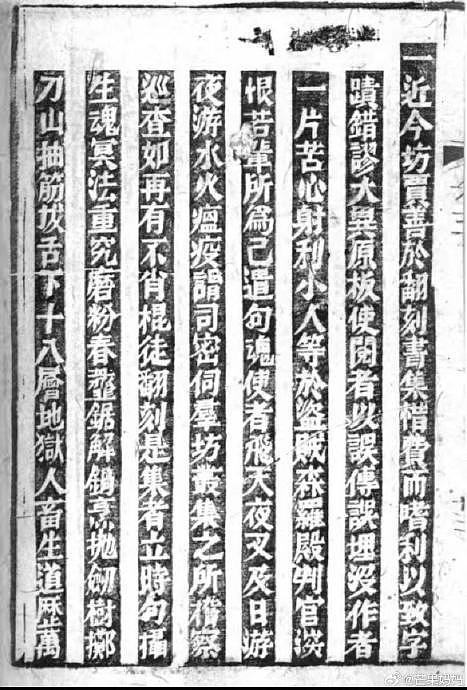 一近今坊賈善於翻刻書集惜費而嗜利以致字
蹟錯謬大異原板使閱者以誤傳誤埋沒作者
一片苦心射利小人等於盜賊森羅殿判官深
恨若輩所爲已遣句魂使者飛天夜叉及日游
夜游水火瘟疫諸司密伺羣坊叢集之所稽察
巡查如再有不肖棍徒翻刻是集者立時句攝
生魂冥法重究磨粉舂韲鋸解鍋烹拋劒樹擲
刀山抽筋拔舌下十八層地獄人畜生道歷萬